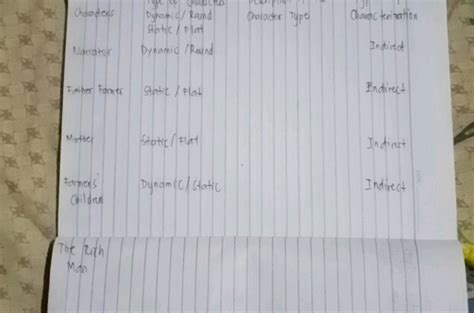 Type of Character
Characters Dynamic / Round Character Type Characterization
Static / Flat
Narrator Dynamic / Round Indirect
Father Farmer Static / Flat Indirect
Mother Static / Flat Indirect
Farmers' Dynamic / Static Indirect
Children
The Rich
Man